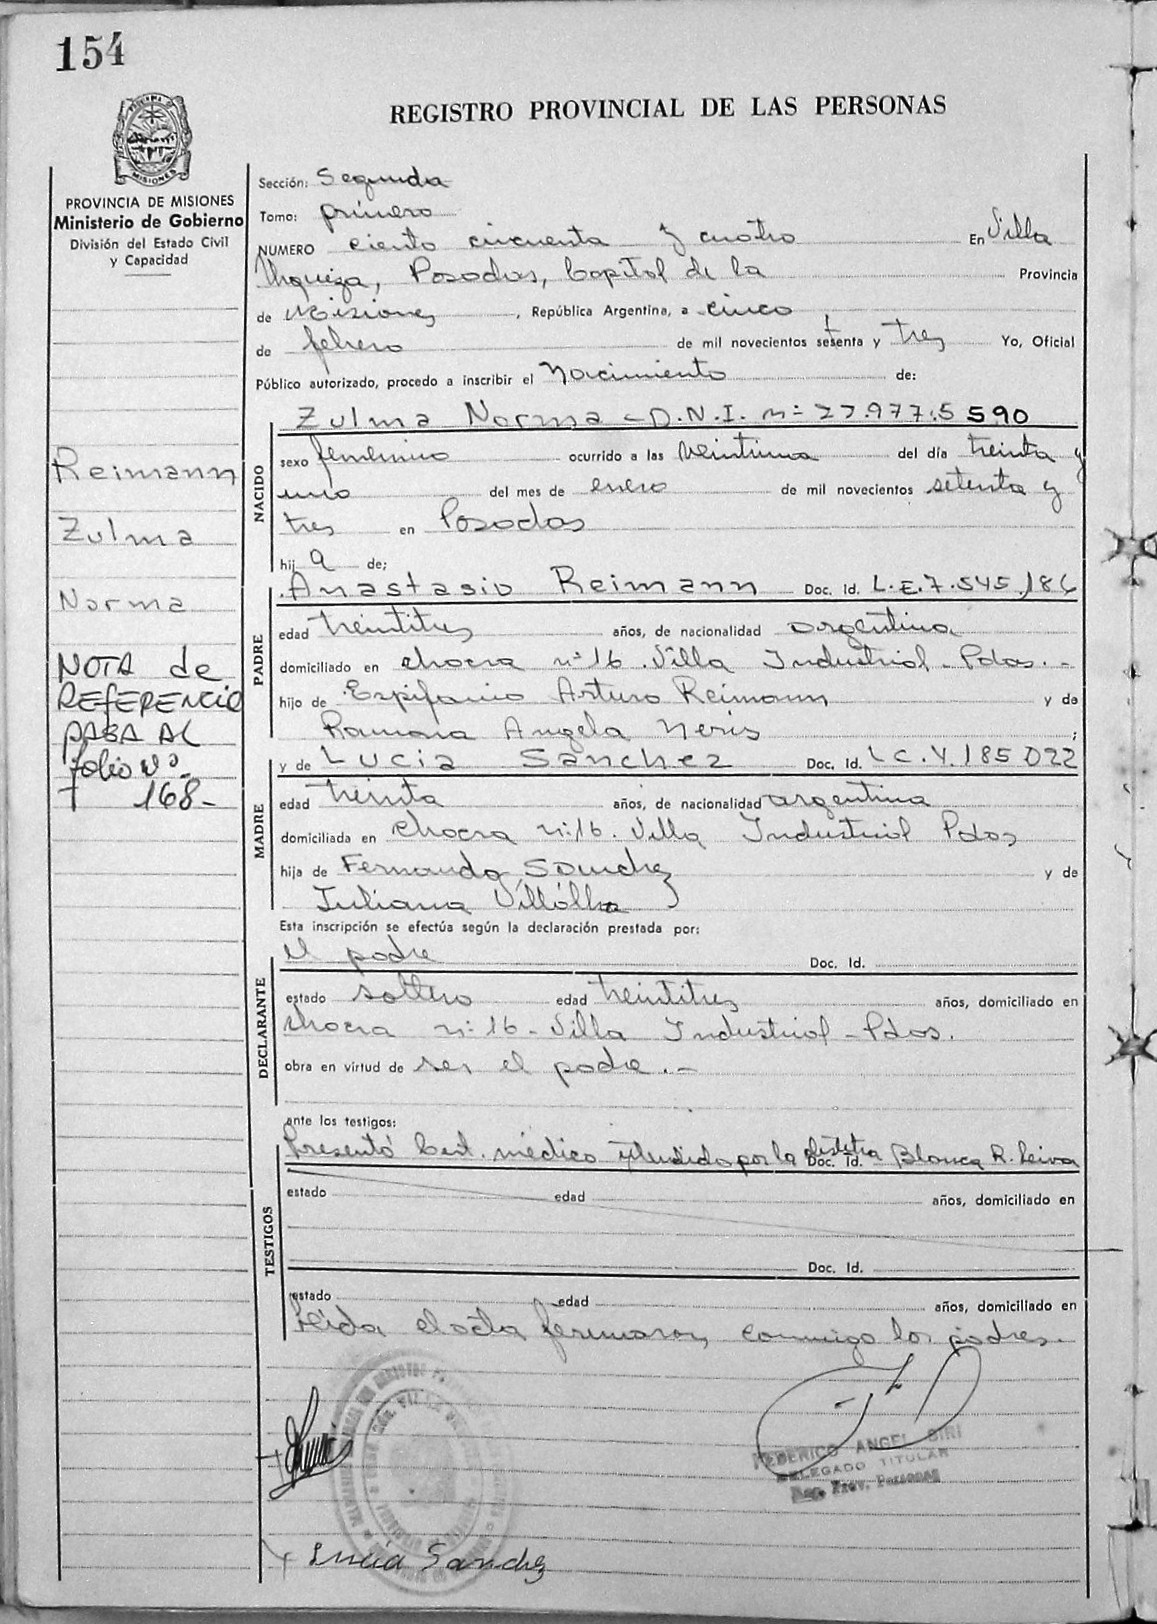 154
REGISTRO PROVINCIAL DE LAS PERSONAS
MISIONES
PROVINCIA DE MISIONES
Ministerio de Gobierno
División del Estado Civil
y Capacidad
Reimann
Zulma
Norma
NOTA de
REFERENCIA
PASA AL
folio Nº
168-
Sección: Segunda
Tomo: primero
NUMERO ciento cincuenta y cuatro En Villa
Urquiza, Posadas, Capital de la Provincia
de Misiones, República Argentina, a cinco
de febrero de mil novecientos setenta y tres Yo, Oficial
Público autorizado, procedo a inscribir el Nacimiento de:
NACIDO
Zulma Norma - D.N.I. nº 22.977.5 590
sexo femenino ocurrido a las veintiuna del día treinta y
uno del mes de enero de mil novecientos setenta y
tres en Posadas
hij a de;
PADRE
Anastasio Reimann Doc. Id. L.E.7.545.186
edad treintitres años, de nacionalidad argentina
domiciliado en chacra nº 16. Villa Industrial - Pdas. -
hijo de Espifanio Arturo Reimann y de
Ramona Angela Neris ;
MADRE
y de Lucia Sanchez Doc. Id. L C. 4.185 022
edad treinta años, de nacionalidad argentina
domiciliada en chacra nº 16. Villa Industrial Pdas
hija de Fernando Sanchez y de
Juliana Villalba
Esta inscripción se efectúa según la declaración prestada por:
DECLARANTE
el padre Doc. Id.
estado soltero edad treintitres años, domiciliado en
chacra nº 16 - Villa Industrial - Pdas.
obra en virtud de ser el padre . -
ante los testigos:
TESTIGOS
Presentó Cert. médico extendido por la obstetra Doc. Id. Blanca R. Leiva
estado edad años, domiciliado en
Doc. Id.
estado edad años, domiciliado en
Leida el acta firmaron conmigo los padres.
FEDERICO ANGEL SIRI
DELEGADO TITULAR
Reg. Prov. Personas
Lucía Sanchez